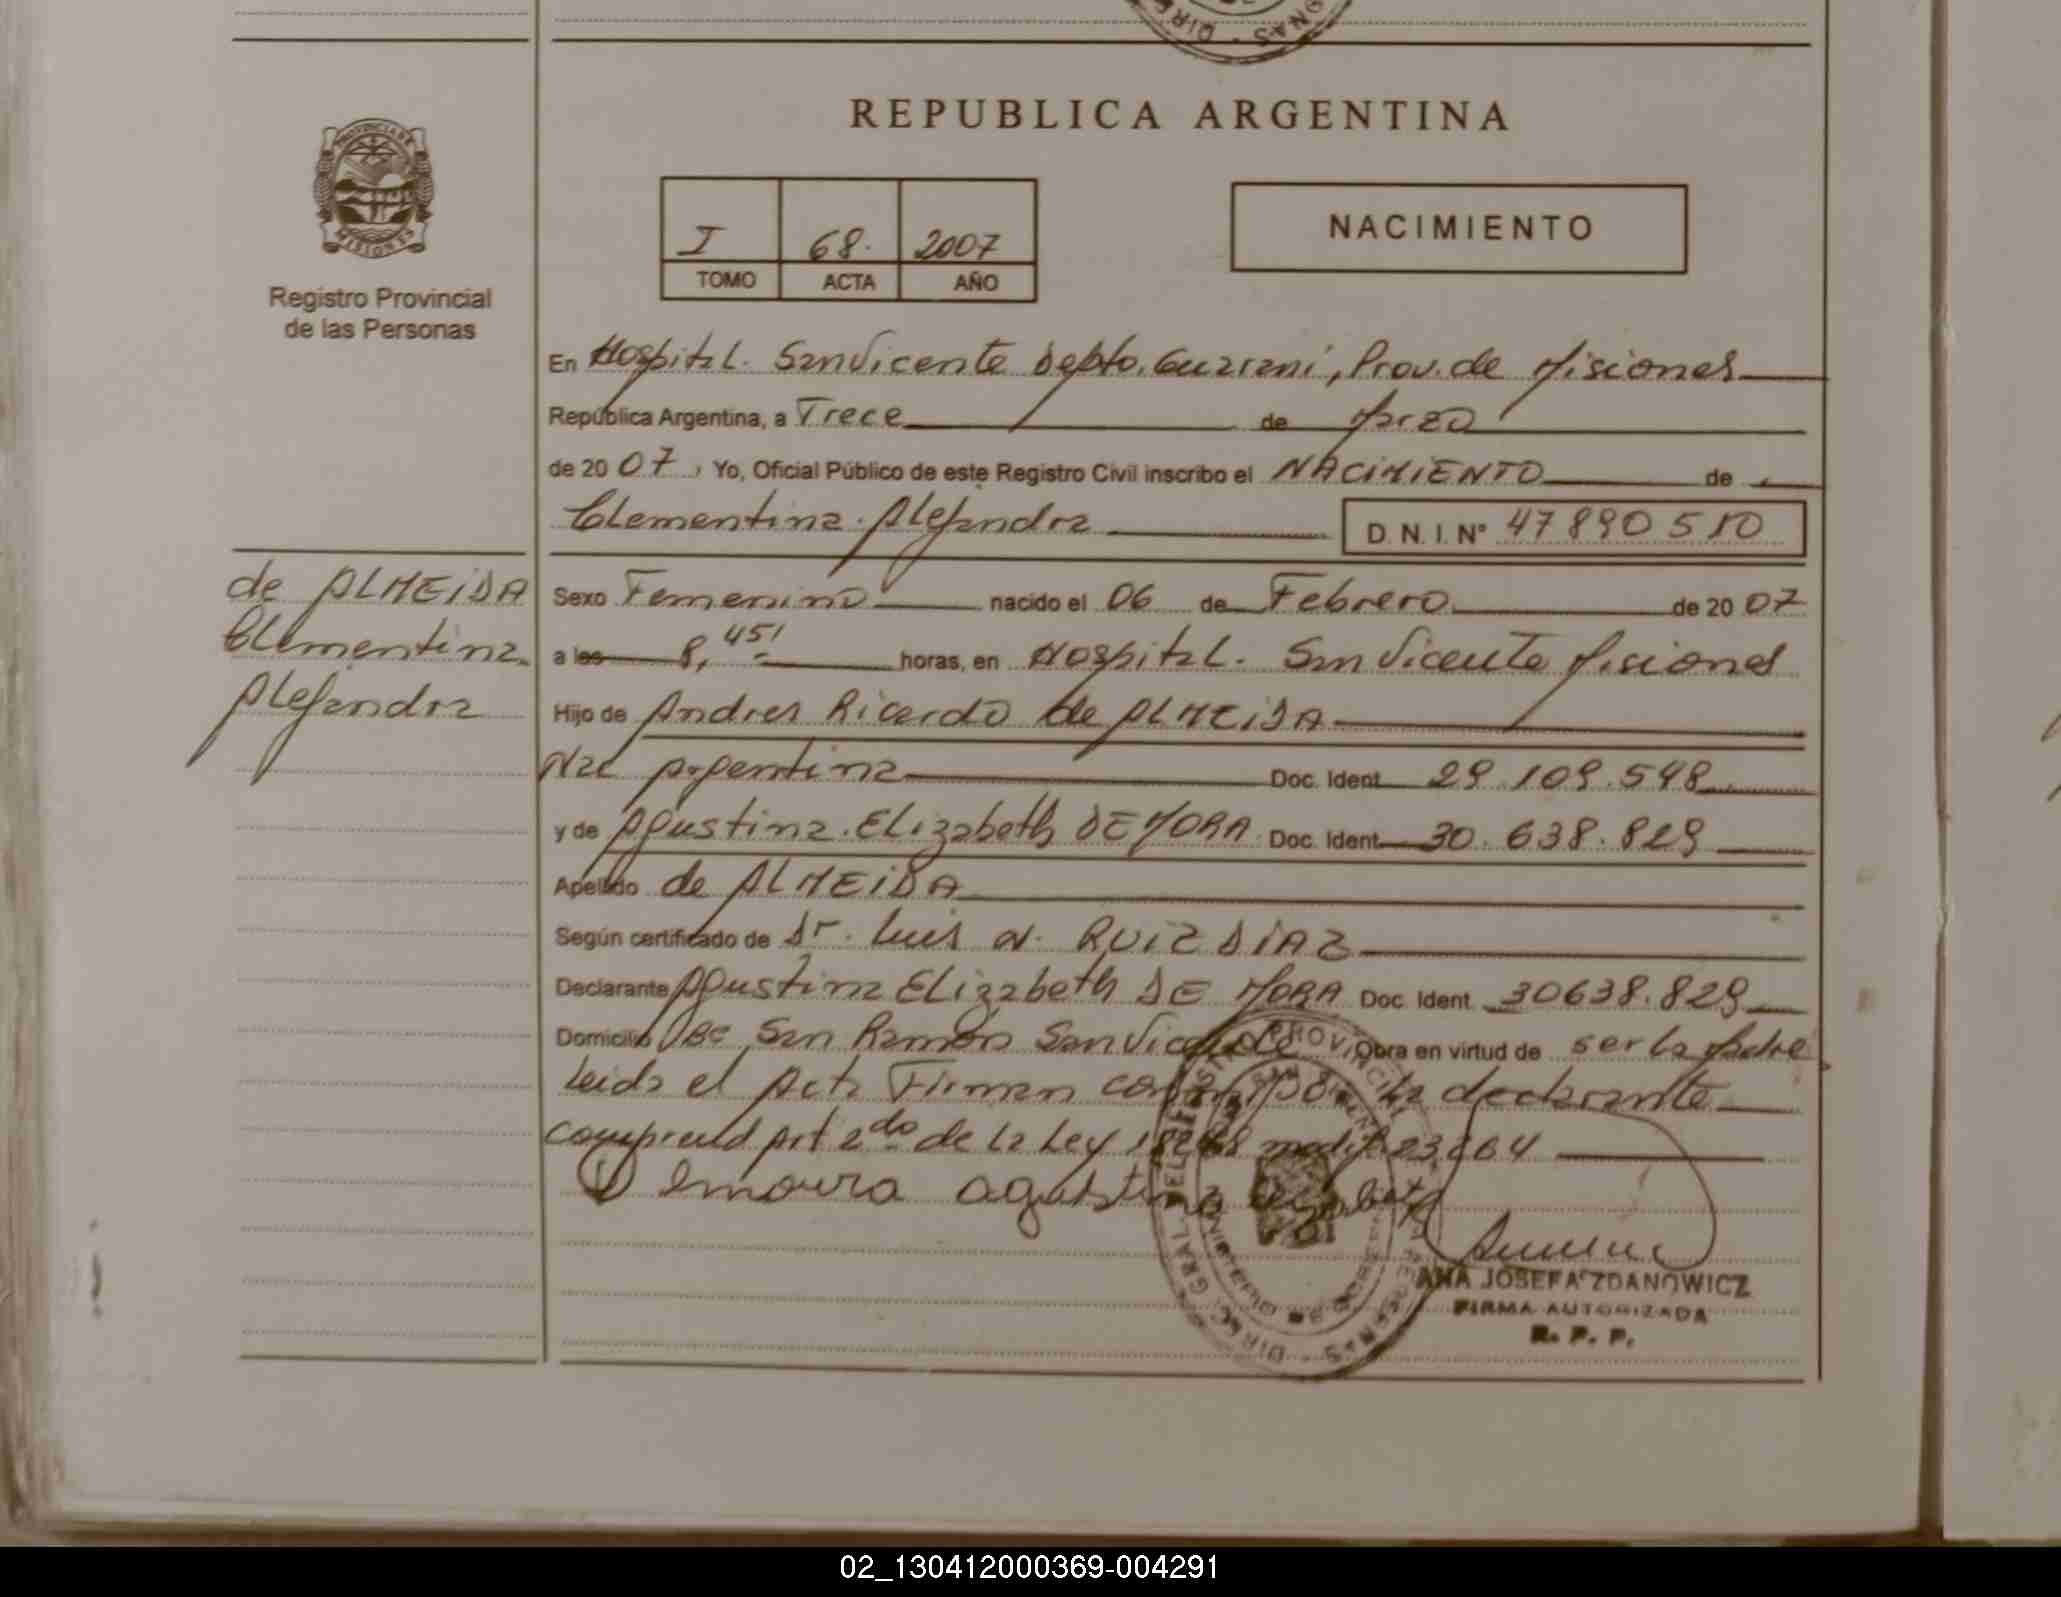 REPUBLICA ARGENTINA
PROVINCIA DE
MISIONES
Registro Provincial
de las Personas
I 68. 2007
TOMO ACTA AÑO
NACIMIENTO
En Hospital. San Vicente Depto. Guarani, Prov. de Misiones
República Argentina, a Trece de Marzo
de 20 07, Yo, Oficial Público de este Registro Civil inscribo el NACIMIENTO de
Clementina Alejandra D. N. I. Nº 47890510
de ALMEIDA
Clementina
Alejandra
Sexo Femenino nacido el 06 de Febrero de 20 07
a las 8,45' horas, en Hospital. San Vicente Misiones
Hijo de Andres Ricardo de ALMEIDA
Nac Argentina Doc. Ident. 29.109.548
y de Agustina Elizabeth DE MORA Doc. Ident. 30.638.829
Apellido de ALMEIDA
Según certificado de Dr. Luis N. RUIZ DIAZ
Declarante Agustina Elizabeth DE MORA Doc. Ident. 30638.829
Domicilio Bº San Ramón San Vicente Obra en virtud de ser la Madre
Leida el Acta Firman la declarante
comprend Art 2do de la Ley modif. 23
Demoura agustina
ANA JOSEFA ZDANOWICZ
FIRMA AUTORIZADA
R. P. P.
02_130412000369-004291